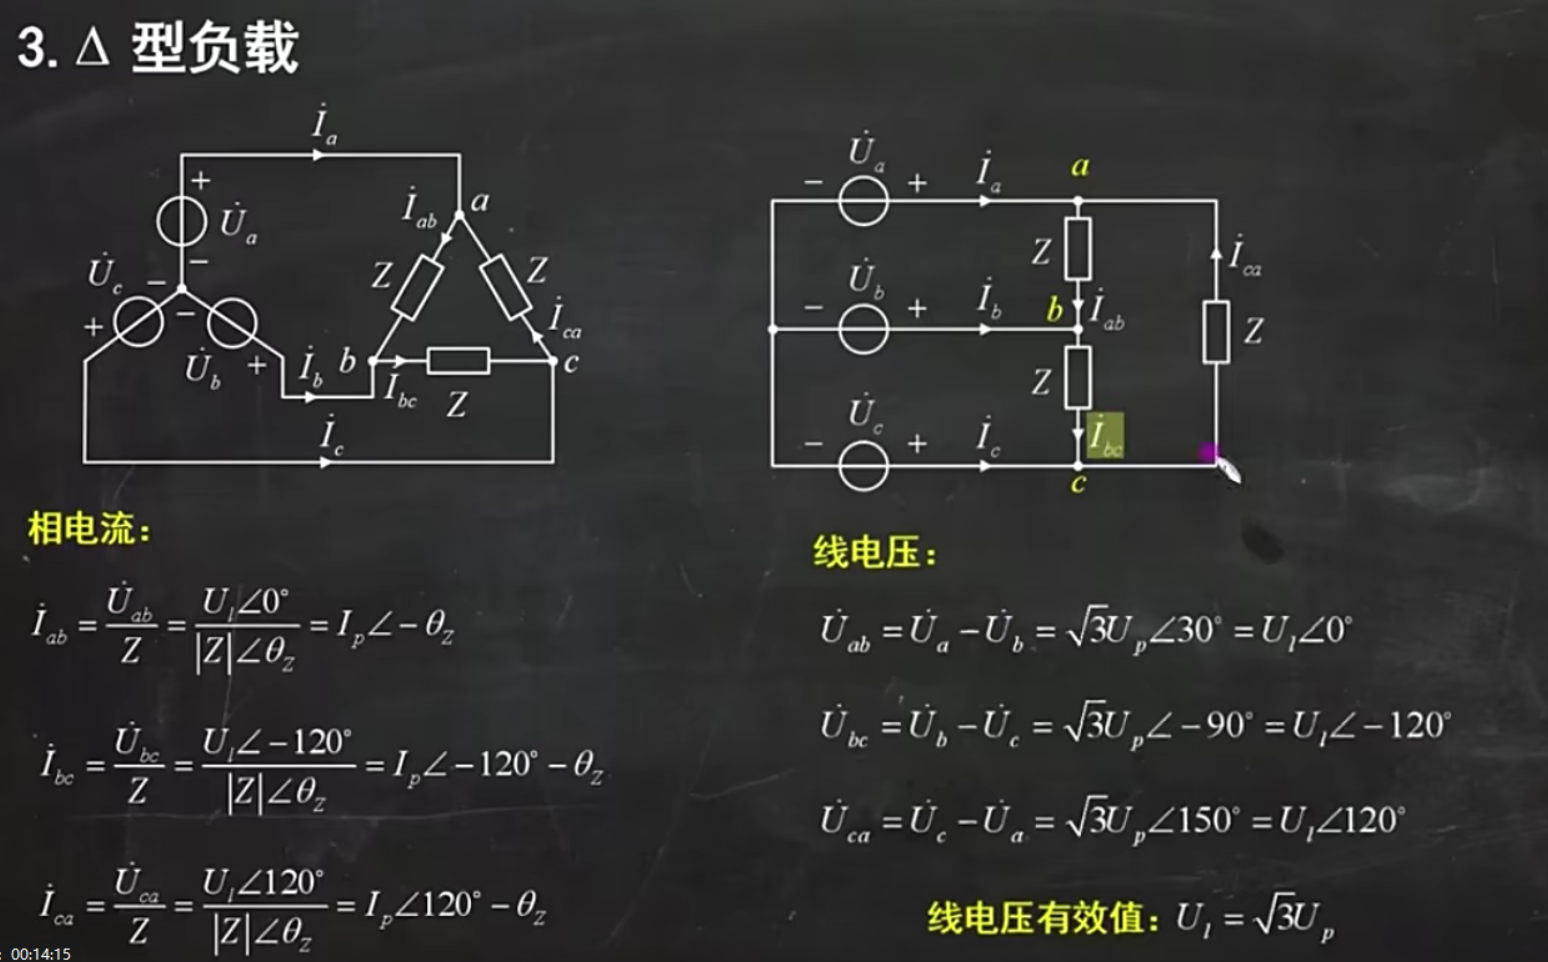 3. Δ 型负载
İ_a
+
U̇_a
−
U̇_c
−
+
−
U̇_b
+
İ_b
İ_c
İ_ab
a
Z
Z
İ_ca
b
c
İ_bc
Z
U̇_a
−
+
İ_a
a
Z
İ_ca
U̇_b
−
+
İ_b
b
İ_ab
Z
Z
U̇_c
−
+
İ_c
İ_bc
c
相电流：
İ_ab = U̇_ab / Z = U_l∠0° / |Z|∠θ_Z = I_p∠−θ_Z
İ_bc = U̇_bc / Z = U_l∠−120° / |Z|∠θ_Z = I_p∠−120°−θ_Z
İ_ca = U̇_ca / Z = U_l∠120° / |Z|∠θ_Z = I_p∠120°−θ_Z
线电压：
U̇_ab = U̇_a − U̇_b = √3U_p∠30° = U_l∠0°
U̇_bc = U̇_b − U̇_c = √3U_p∠−90° = U_l∠−120°
U̇_ca = U̇_c − U̇_a = √3U_p∠150° = U_l∠120°
线电压有效值：U_l = √3U_p
: 00:14:15